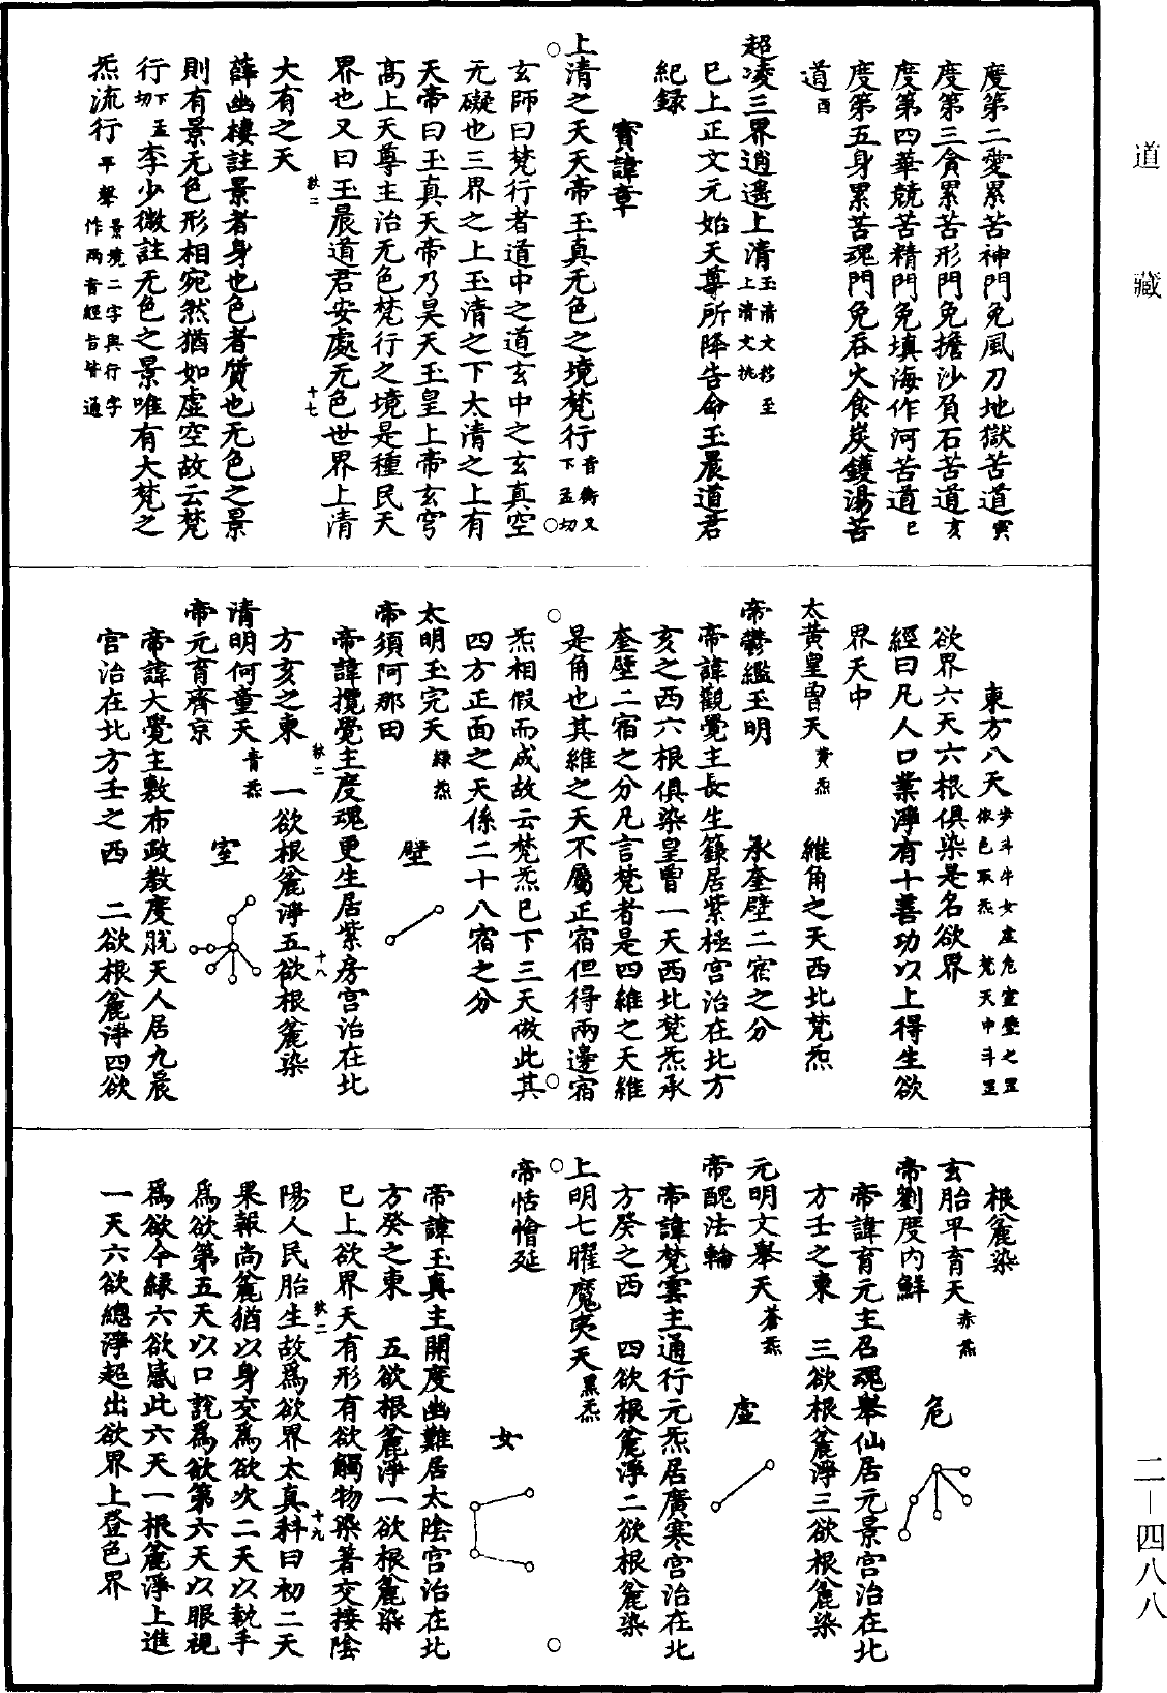 道藏
二—四八八
度第二愛累苦神門免風刀地獄苦道寅
度第三貪累苦形門免擔沙負石苦道亥
度第四華競苦精門免填海作河苦道巳
度第五身累苦魂門免吞火食炭鑊湯苦
道酉
超凌三界逍遙上清玉清文移至上清文挑
巳上正文元始天尊所降告命玉晨道君
紀録
寳諱章
○上清之天天帝玉真无色之境梵行音衡又下孟切○
玄師曰梵行者道中之道玄中之玄真空
无礙也三界之上玉清之下太清之上有
天帝曰玉真天帝乃昊天玉皇上帝玄穹
高上天尊主治无色梵行之境是種民天
界也又曰玉晨道君安處无色世界上清
欵二
十七
大有之天
薛幽棲註景者身也色者質也无色之景
則有景无色形相宛然猶如虚空故云梵
行下孟切李少微註无色之景唯有大梵之
炁流行平聲景境二字與行字作兩音經旨皆通
東方八天步斗牛女虚危室壁之罡依色取炁梵天中斗罡
欲界六天六根俱染是名欲界
經曰凡人口業淨有十善功以上得生欲
界天中
太黄皇曾天黄炁 維角之天西北梵炁
帝鬱鑑玉明 承奎壁二宿之分
帝諱觀覺主長生籙居紫極宫治在北方
亥之西六根俱染皇曾一天西北梵炁承
奎壁二宿之分凡言梵者是四維之天維
○是角也其維之天不屬正宿但得兩邊宿○
炁相假而成故云梵炁巳下三天倣此其
四方正面之天係二十八宿之分
太明玉完天緑炁 壁
帝須阿那田
帝諱攬覺主度魂更生居紫房宫治在北
方亥之東 一欲根麄淨五欲根麄染
欵二
十八
清明何童天青炁 室
帝元育齊京
帝諱大覺主敷布政教度脱天人居九晨
宫治在北方壬之西 二欲根麄淨四欲
根麄染
玄胎平育天赤炁 危
帝劉度内鮮
帝諱育元主召魂舉仙居元景宫治在北
方壬之東 三欲根麄淨三欲根麄染
元明文舉天蒼炁 虚
帝醜法輪
帝諱梵雲主通行元炁居廣寒宫治在北
方癸之西 四欲根麄淨二欲根麄染
○上明七曜魔夷天黑炁 女○
帝恬懀延
帝諱玉真主開度幽難居太陰宫治在北
方癸之東 五欲根麄淨一欲根麄染
巳上欲界天有形有欲觸物染著交接陰
陽人民胎生故爲欲界太真科曰初二天
欵二
十九
果報尚麄猶以身交爲欲次二天以執手
爲欲第五天以口説爲欲第六天以眼視
爲欲今緑六欲感此六天一根麄淨上進
一天六欲總淨超出欲界上登色界